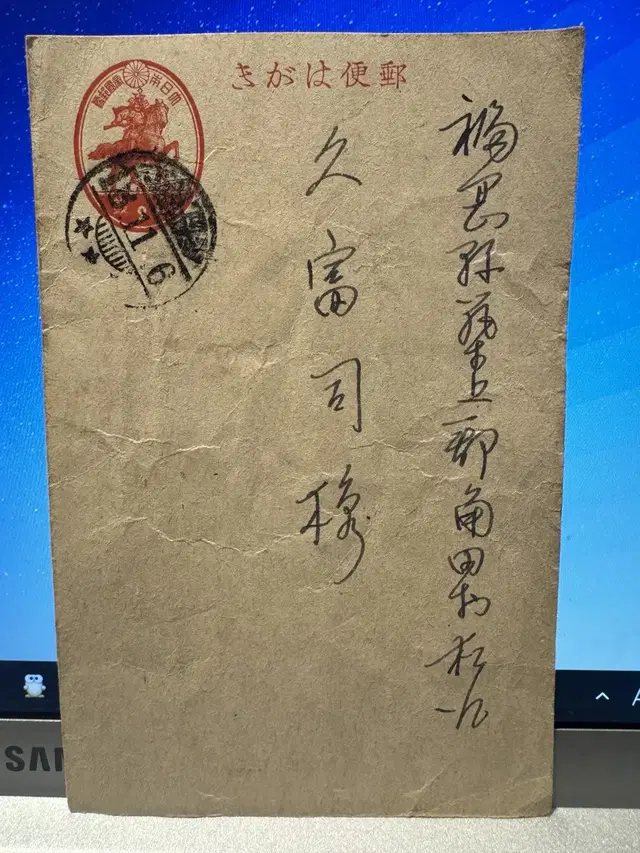 郵便はがき
大日本帝國郵便
福岡縣築上郡角田村
久富司様
SAM